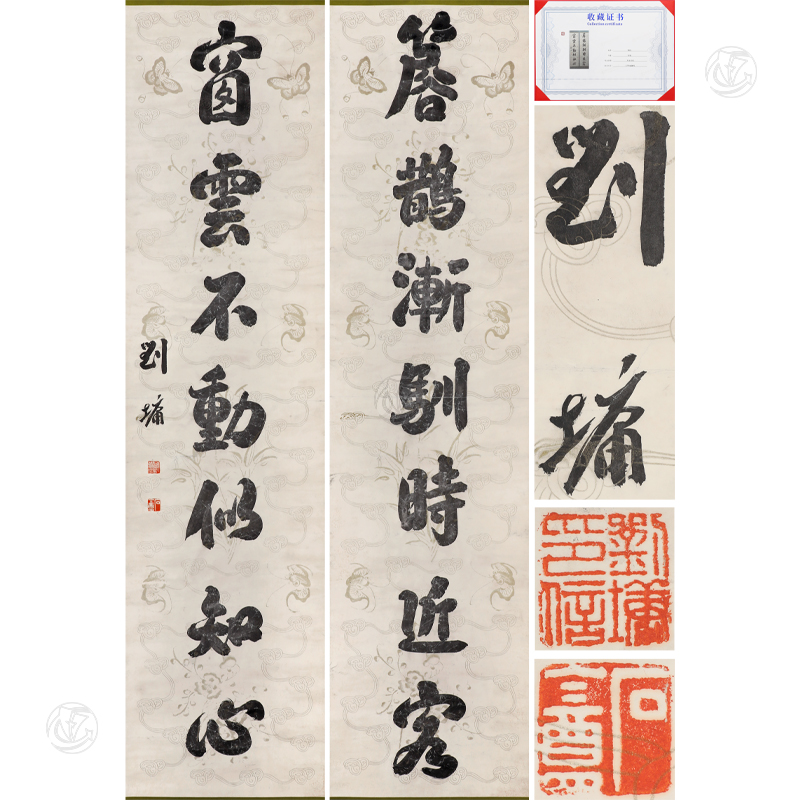 簷鵲漸馴時近客
窗雲不動似知心
劉墉
收藏证书
Collection certificate
劉墉
劉墉印信
石